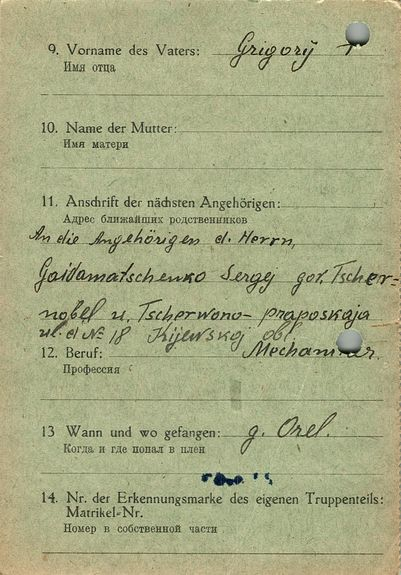 9. Vorname des Vaters: Grigorÿ †
Имя отца
10. Name der Mutter:
Имя матери
11. Anschrift der nächsten Angehörigen:
Адрес ближайших родственников
An die Angehörigen d. Herrn,
Gaidamatschenko Sergej gor. Tscher-
nobel u. Tscherwono-praposkaja
ul. d № 18 Kijewskoj obl.
12. Beruf: Mechaniker
Профессия
13 Wann und wo gefangen: g. Orel.
Когда и где попал в плен
14. Nr. der Erkennungsmarke des eigenen Truppenteils:
Matrikel-Nr.
Номер в собственной части